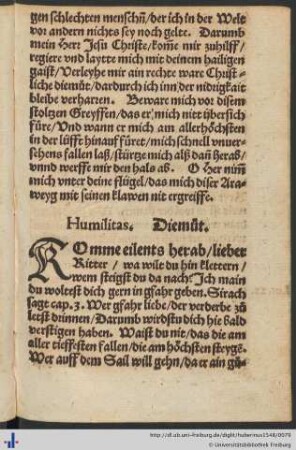 gen schlechten menschñ/ der ich in der Welt
vor andern nichts sey noch gelte. Darumb
mein Herr Jesu Christe/ kom̃e mir zuhilff/
regiere vnd laytte mich mit deinem hailigen
gaist/ Verleyhe mir ain rechte ware Christ-
liche diemůt/ dardurch ich inn der nidrigkait
bleibe verharren. Beware mich vor disem
stoltzen Greyffen/ das er mich nitt übersich
füre/ Vnd wann er mich am allerhöchsten
in der lüfft hinauf füret/ mich schnell vnuer-
sehens fallen laß/ stürtze mich alß dañ herab/
vnnd werffe mir den hals ab. O Herr nim̃
mich vnter deine flügel/ das mich diser Ara-
weyg mit seinen klawen nit ergreiffe.
Humilitas. Diemůt.
KOmme eilents herab/ lieber
Ritter/ wa wilt du hin klettern/
wem steigst du da nach? Ich main
du woltest dich gern in gfahr geben. Sirach
sagt cap. 3. Wer gfahr liebt/ der verderbt zů
letst drinnen/ Darumb wirdstu dich hie bald
verstigen haben. Waist du nit/ das die am
aller tieffesten fallen/ die am höchsten steygẽ.
Wer auff dem Sail will gehn/ da er ain gů-
http://dl.ub.uni-freiburg.de/diglit/hubermus1548/0079
© Universitätsbibliothek Freiburg